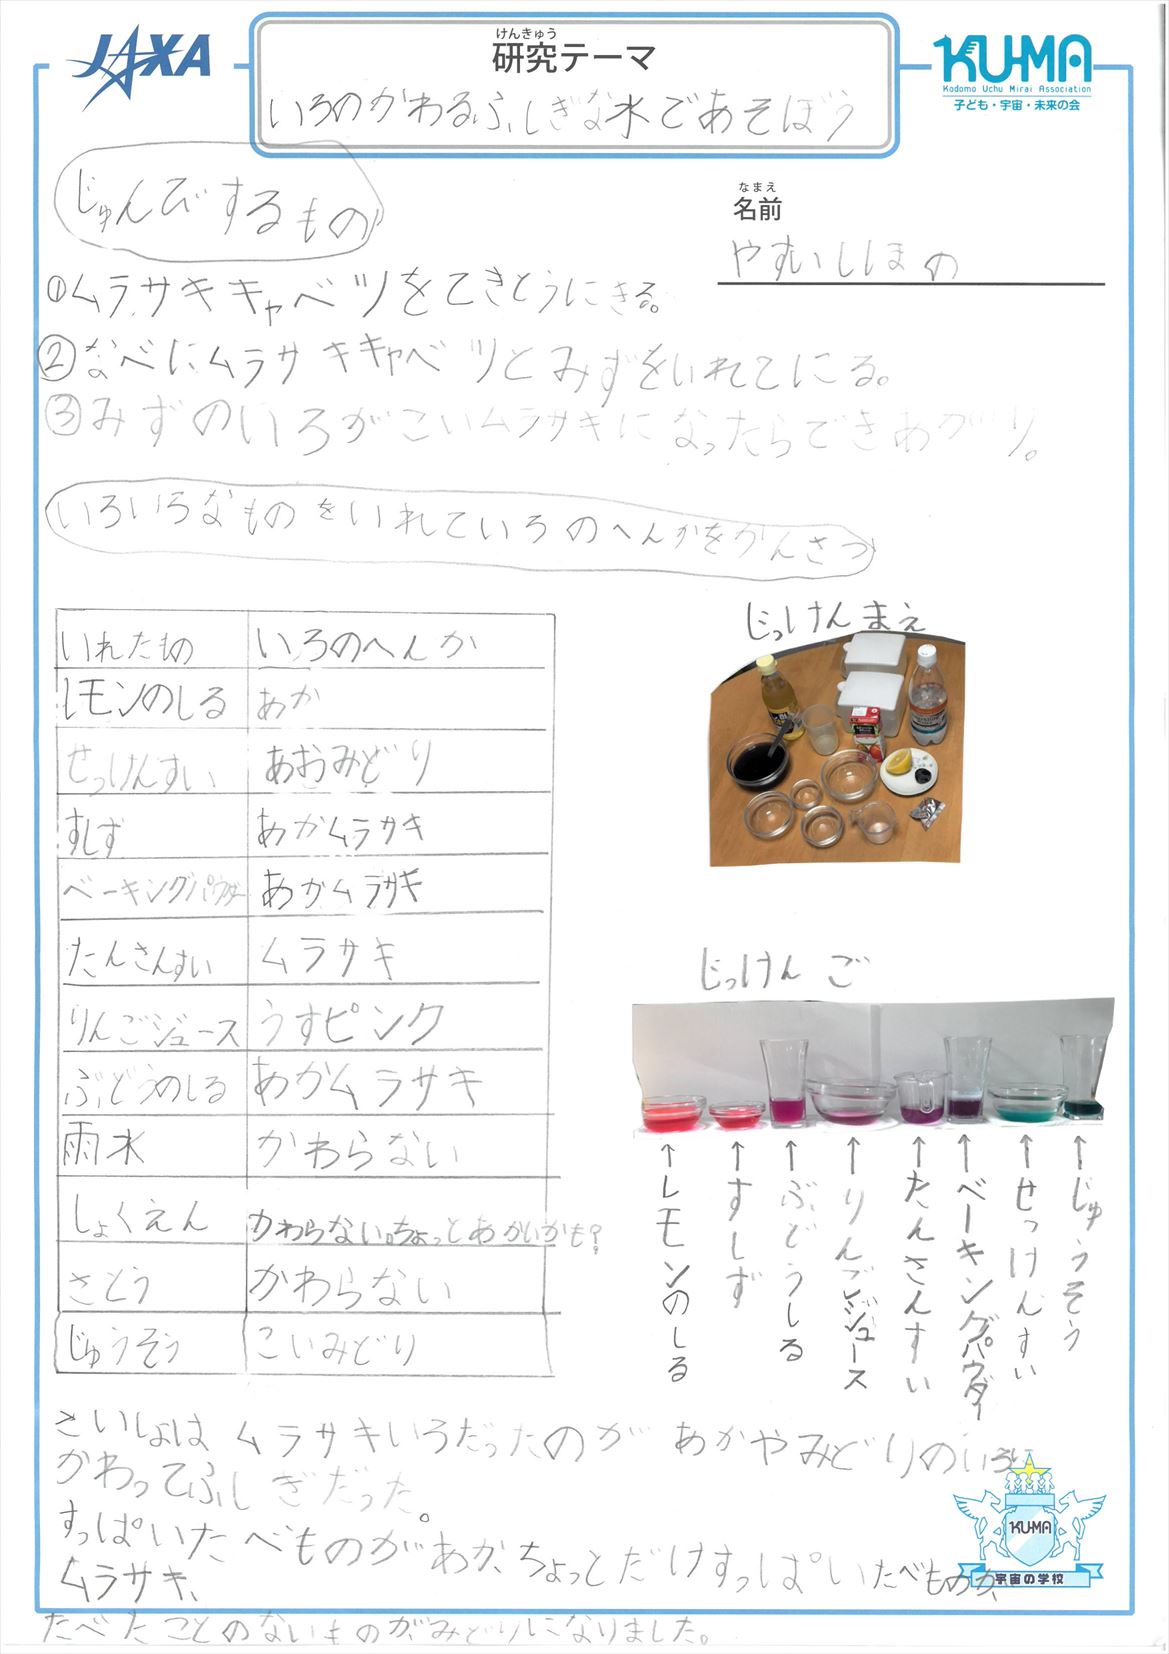 JAXA
けんきゅう
研究テーマ
いろのかわるふしぎな水であそぼう
KU-MA
Kodomo Uchu Mirai Association
子ども・宇宙・未来の会
じゅんびするもの
なまえ
名前
やすいしほの
①ムラサキキャベツをてきとうにきる。
②なべにムラサキキャベツとみずをいれてにる。
③みずのいろがこいムラサキになったらできあがり。
いろいろなものをいれていろのへんかをかんさつ
いれたもの いろのへんか
レモンのしる あか
せっけんすい あおみどり
すしず あかムラサキ
ベーキングパウダー あかムラサキ
たんさんすい ムラサキ
りんごジュース うすピンク
ぶどうのしる あかムラサキ
雨水 かわらない
しょくえん かわらない。ちょっとあかいかも?
さとう かわらない
じゅうそう こいみどり
じっけんまえ
じっけんご
↑レモンのしる
↑すしず
↑ぶどうしる
↑りんごジュース
↑たんさんすい
↑ベーキングパウダー
↑せっけんすい
↑じゅうそう
さいしょはムラサキいろだったのがあかやみどりのいろに
かわってふしぎだった。
すっぱいたべものがあか、ちょっとだけすっぱいたべものが、
ムラサキ、
たべたことのないものが、みどりになりました。
KU-MA
宇宙の学校